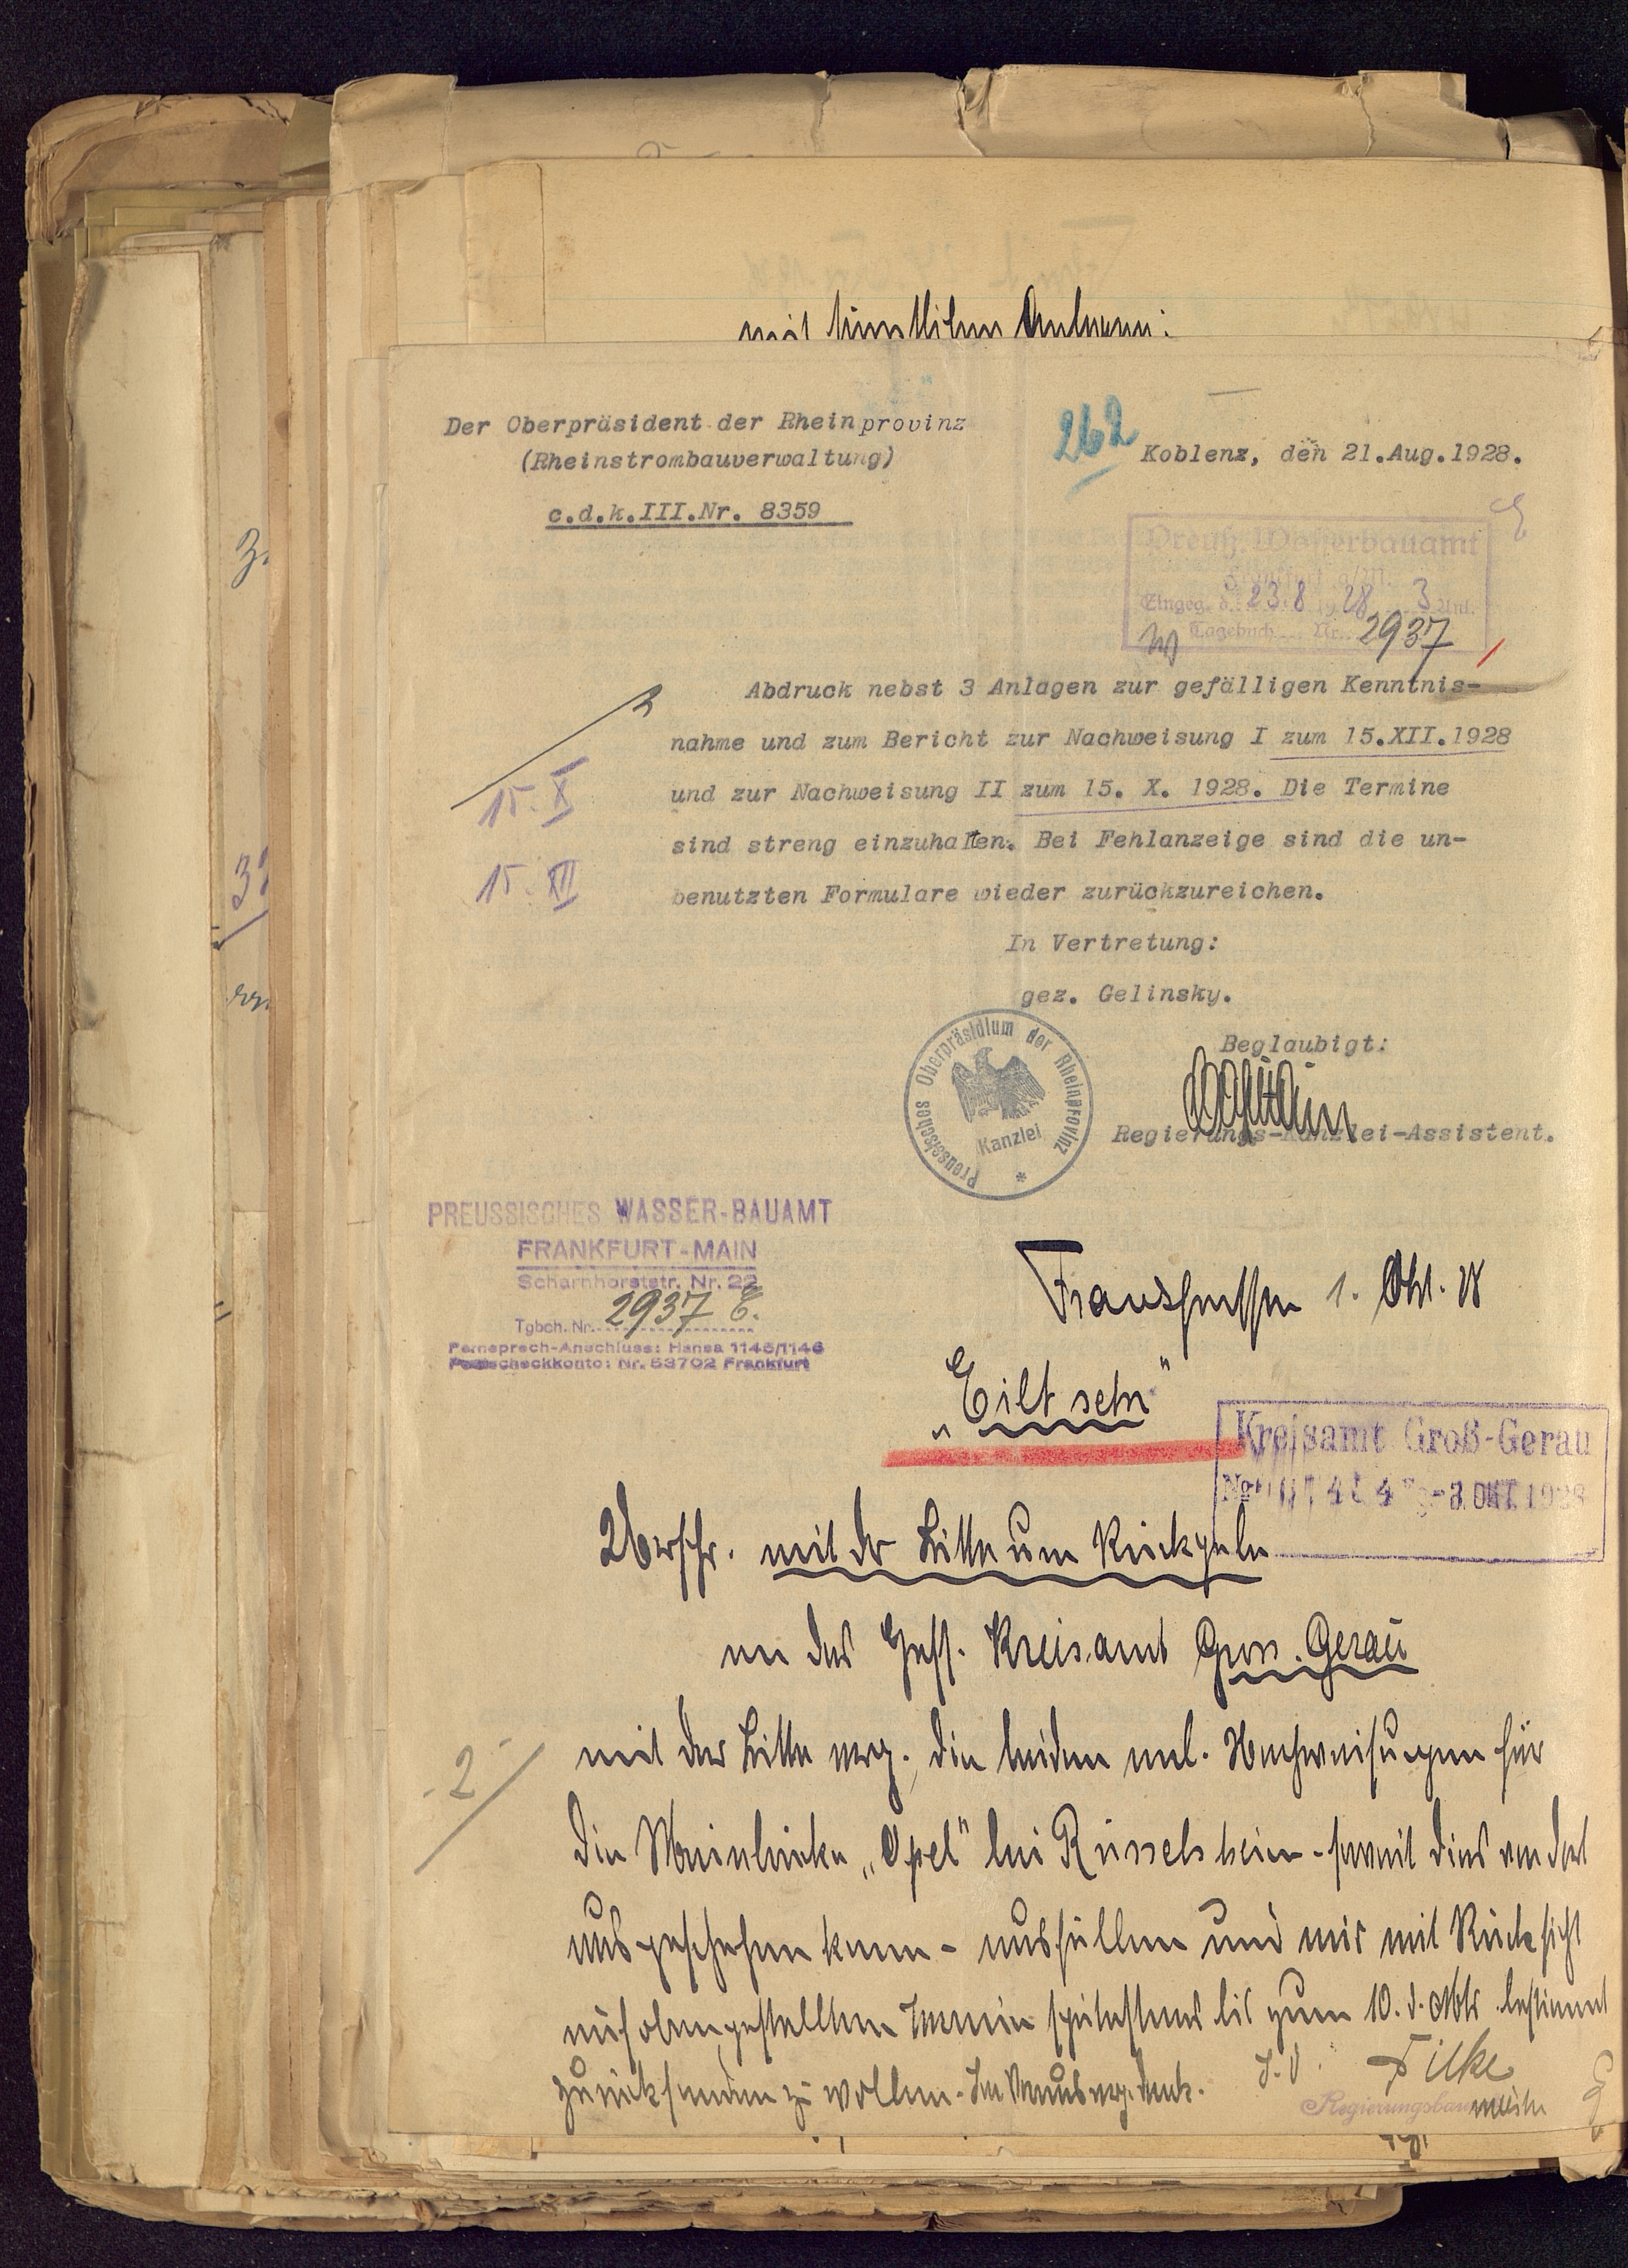 mit sämtlichen
Der Oberpräsident der Rheinprovinz
(Rheinstrombauverwaltung)
c.d.k.III.Nr. 8359
262
Koblenz, den 21.Aug.1928.
Preuß. Wasserbauamt
Frankfurt a/M.
Eingeg. d. 23.8.1928 3 Anl.
Tagebuch Nr. 2937
Abdruck nebst 3 Anlagen zur gefälligen Kenntnis-
nahme und zum Bericht zur Nachweisung I zum 15.XII.1928
und zur Nachweisung II zum 15. X. 1928. Die Termine
sind streng einzuhalten. Bei Fehlanzeige sind die un-
benutzten Formulare wieder zurückzureichen.
15. X
15. XII
In Vertretung:
gez. Gelinsky.
Beglaubigt:
Regierungs-Kanzlei-Assistent.
Preussisches Oberpräsidium der Rheinprovinz
Kanzlei
PREUSSISCHES WASSER-BAUAMT
FRANKFURT-MAIN
Scharnhorststr. Nr. 22
Tgbch. Nr. 2937 E.
Fernsprech-Anschluss: Hansa 1145/1146
Postscheckkonto: Nr. 53702 Frankfurt
1. Okt. 28
„Eilt sehr"
Kreisamt Groß-Gerau
-3.OKT.1928
Urschr. mit der Bitte um Rückgabe
an das Hess. Kreisamt Gross-Gerau
-2-
mit der Bitte erg., die beiden anl. Nachweisungen für
die Mainbrücke „Opel" bei Rüsselsheim - soweit dies von dort
aus geschehen kann - ausfüllen und mir mit Rücksicht
auf oben gestellten Termin spätestens bis zum 10. d. Mts. bestimmt
zurücksenden zu wollen. Im Voraus erg. Dank.
J.V. Filke
Regierungsbaumeister